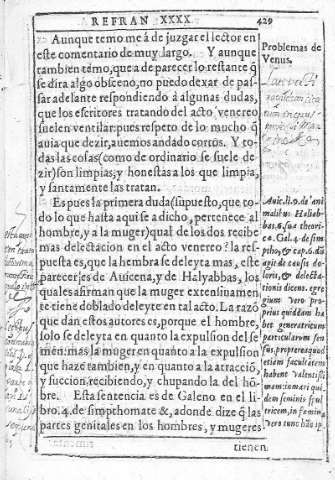 REFRAN XXXX. 429
Aunque temo me á de juzgar el lector en
este comentario de muy largo. Y aunque
tambien temo, que a de parecer lo restante q̃
se dira algo obsceno, no puedo dexar de pas-
sar adelante respondiendo á algunas dudas,
que los escritores tratando del acto venereo
suelen ventilar: pues respeto de lo mucho q̃
auia que dezir, auemos andado cortos. Y to-
das las cosas (como de ordinario se suele de-
zir) son limpias, y honestas a los que limpia,
y santamente las tratan.
Es pues la primera duda (supuesto, que to-
do lo que hasta aqui se a dicho, pertenece al
hombre, y a la muger) qual de los dos recibe
mas delectacion en el acto venereo? la res-
puesta es, que la hembra se deleyta mas, este
parecer es de Auicena, y de Halyabbas, los
quales afirman que la muger extensiuamen-
te tiene doblado deleyte en tal acto. La razõ
que dan estos autores es, porque el hombre,
solo se deleyta en quanto la expulsion del se
men: mas la muger en quanto a la expulsion
que haze tambien, y en quanto a la atracciõ,
y succion, recibiendo, y chupando la del hõ-
bre. Esta sentencia es de Galeno en el li-
bro. 4. de simpthomate &, adonde dize q̃ las
partes genitales en los hombres, y mugeres
tienen
Problemas de
Venus.
Auic. li. 9. de a-
nimalibus Haliab-
bas, 6. sua theori-
ca. Gal. 4. de sim-
ptho, & cap. 6. du
apie de causis do-
loris, & delecta-
tionis dicens. egre
gium vero pro-
prius quiddam ha
bet generatricum
particularum sen-
sus, propterea quod
etiam facultatem
habent valentissi-
mam: in mari qui-
dem seminis ex-
tricem, in fœmina
vero tunc huius p.